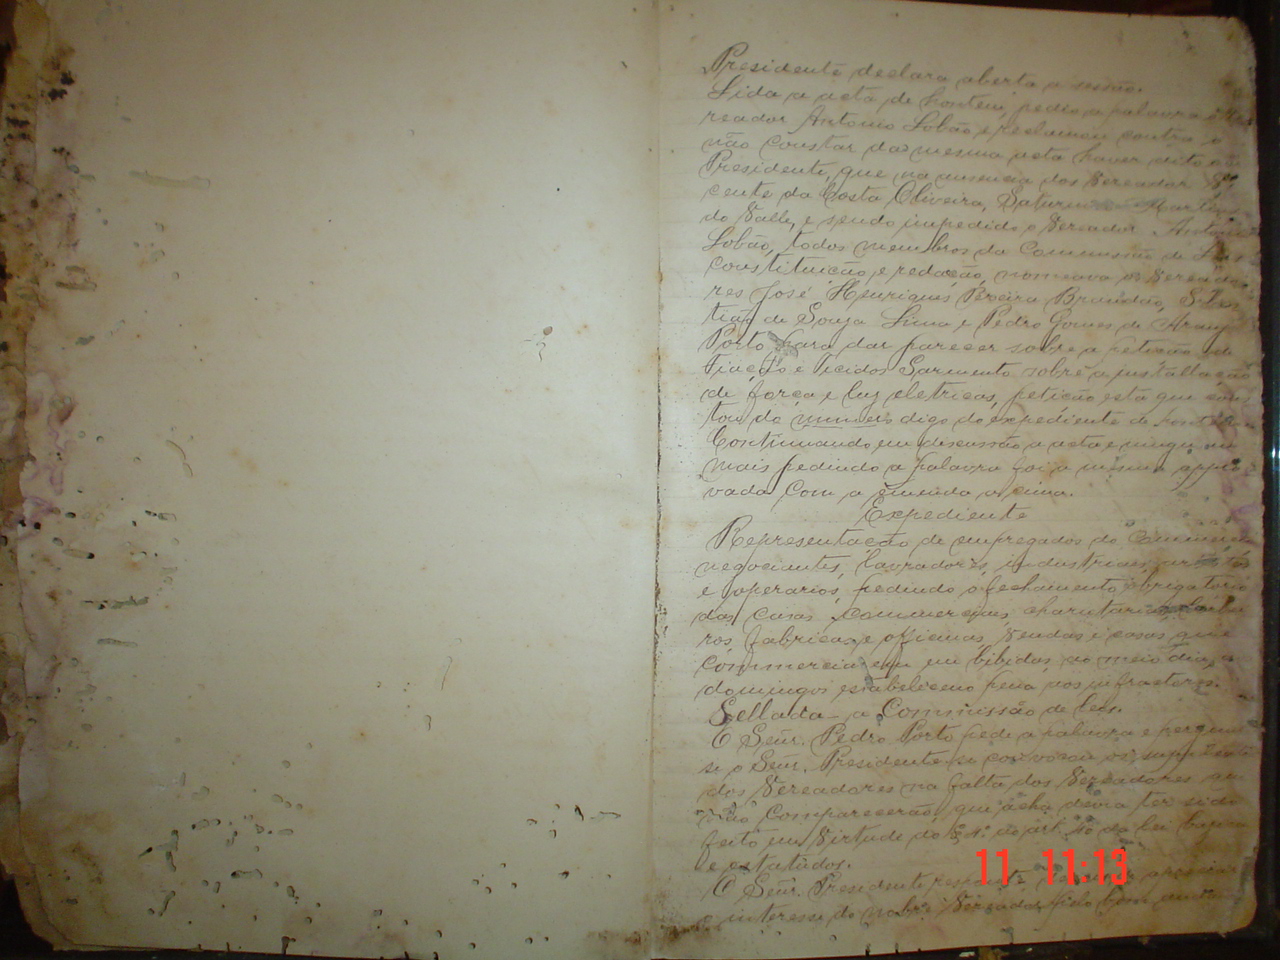 Presidente declara aberta a sessão.
Lida a acta de hontem, pedio a palavra o Ve
reador Antonio Lobão e reclamou contra o
não constar da mesma acta haver dito o
Presidente, que na ausencia dos Vereador Vi
cente da Costa Oliveira, Saturnino Martins
do Valle, e sendo impedido o Vereador Antonio
Lobão, todos membros da Commissão de Leis
constituição e redacção, nomeava os Vereado
res José Henriques Pereira Brandão, Sebas
tião de Souza Lima e Pedro Gomes de Araujo
Porto para dar parecer sobre a petição de
Fiação e Tecidos Sarmento sobre a installação
de força e luz eletricas, petição esta que cons
tou do digo do expediente de hontem
Continuando em discussão a acta e ninguem
mais pedindo a palavra foi a mesma appro
vada com a emenda a cima.
Expediente
Representação de empregados do Commercio
negociantes, lavradores, industriaes, artistas
e operarios, pedindo o fechamento obrigatorio
das casas commerciaes, charutarias, barbei
ros fabricas e officinas, vendas e casas que
commerciarem em bibidas ao meio dia, a
domingos estabeliceno pena aos infractores.
Sellada a Commissão de Leis.
O Senr. Pedro Porto pede a palavra e pergunta
se o Senr. Presidente se convocou os supplentes
dos Vereadores na falta dos Vereadores que
não comparecerão, que acha devia ter sido
feito em virtude do § 4º do art. do lei
e estatutos.
O Senr. Presidente apreciar
o interesse do nobre Vereador pelo bom
11 11:13